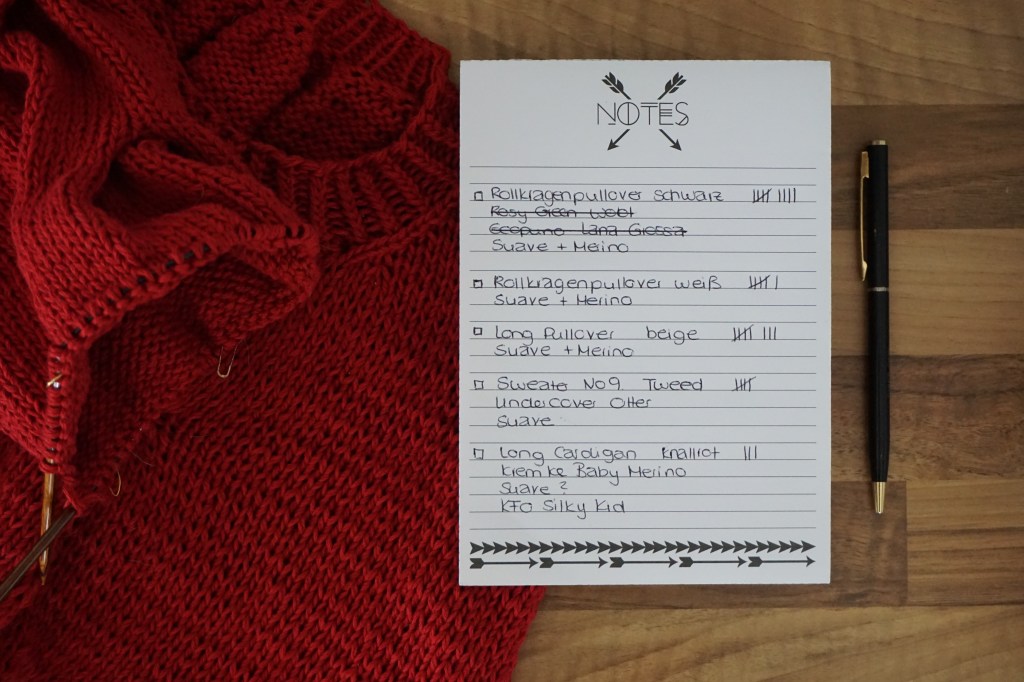 NOTES
Rollkragenpullover schwarz 𝍸 ||||
Rosy Green Wool
Ecopuno Lana Grossa
Suave + Merino
Rollkragenpullover weiß 𝍸 |
Suave + Merino
Long Pullover beige 𝍸 |||
Suave + Merino
Sweater No 9 Tweed 𝍸
Undercover Otter
Suave
Long Cardigan knallrot |||
Kremke Baby Merino
Suave ?
KFO Silky Kid